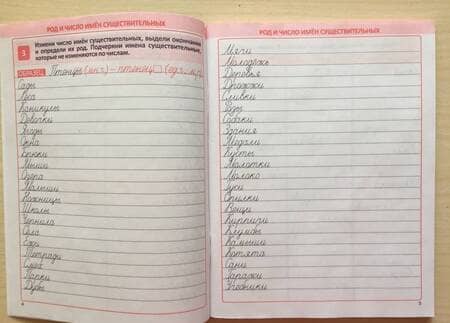 РОД И ЧИСЛО ИМЁН СУЩЕСТВИТЕЛЬНЫХ
3 Измени число имён существительных, выдели окончания
и определи их род. Подчеркни имена существительные,
которые не изменяются по числам.
ОБРАЗЕЦ Птенцы (мн.ч.) – птенец (ед.ч., м.р.)
Сады
Каникулы
Девочки
Ягоды
Окна
Брюки
Озера
Малыши
Ножницы
Школы
Чернила
Сёла
Ежи
Тетради
Парки
Дубы
4
РОД И ЧИСЛО ИМЁН СУЩЕСТВИТЕЛЬНЫХ
Мячи
Молодёжь
Деревья
Дрожжи
Сливки
Собаки
Здания
Медали
Кусты
Молотки
Молоко
Опилки
Вещи
Кирпичи
Клумбы
Камыши
Котята
Сани
Учебники
5